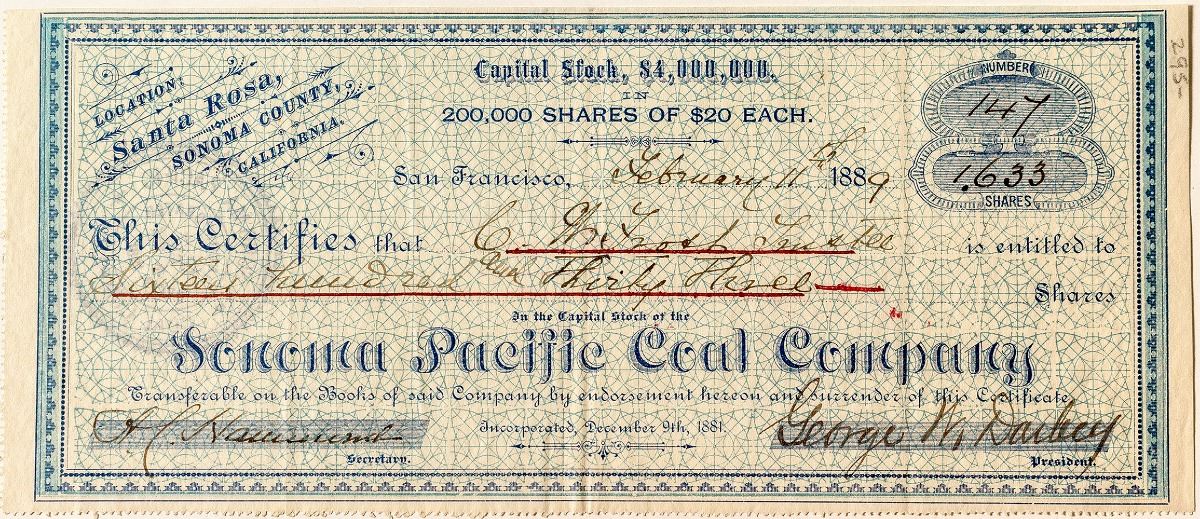 LOCATION:
Santa Rosa,
SONOMA COUNTY,
CALIFORNIA.
Capital Stock, $4,000,000.
IN
200,000 SHARES OF $20 EACH.
NUMBER
147
1.633
SHARES
295-
San Francisco, February 11th 1889
This Certifies that C. W. Frost Trustee is entitled to
Sixteen hundred and Thirty Three Shares
In the Capital Stock of the
Sonoma Pacific Coal Company
Transferable on the Books of said Company by endorsement hereon and surrender of this Certificate
Incorporated, December 9th, 1881.
Secretary.
George W. Darbey
President.